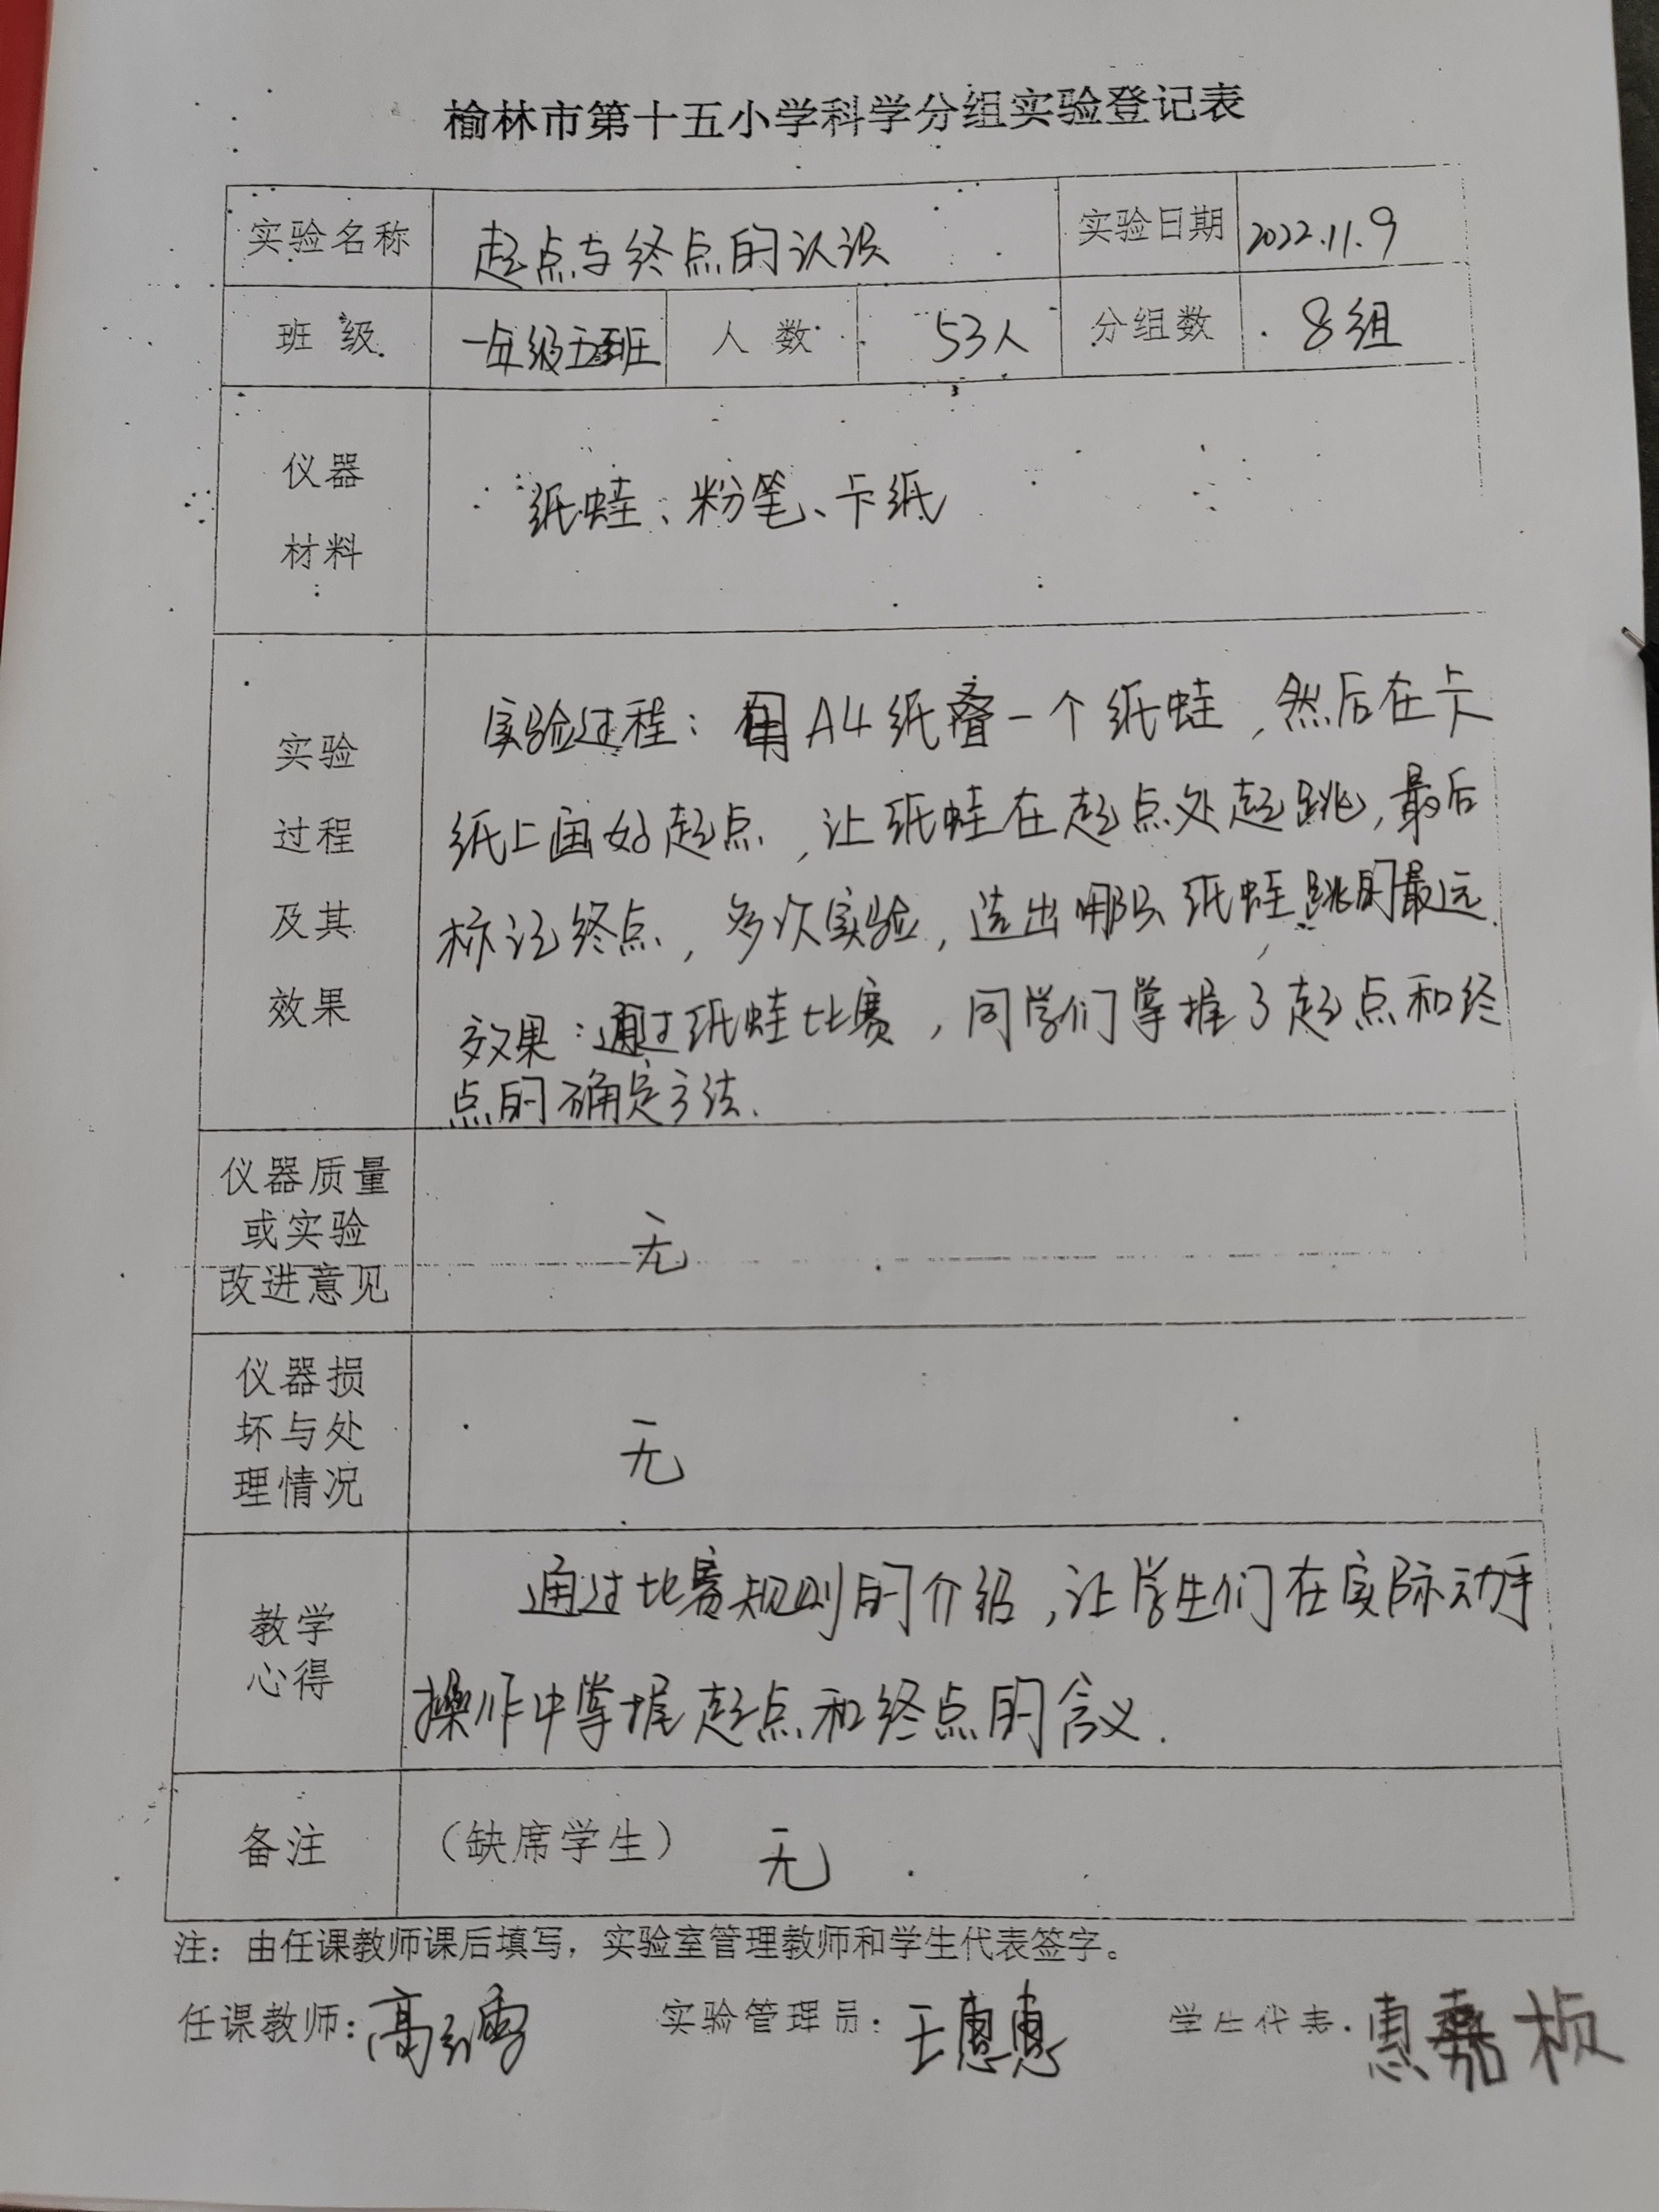 榆林市第十五小学科学分组实验登记表
实验名称 起点与终点的认识 实验日期 2022.11.9
班级 一年级五班 人数 53人 分组数 8组
仪器
材料
纸蛙、粉笔、卡纸
实验
过程
及其
效果
实验过程：用A4纸叠一个纸蛙，然后在卡
纸上画好起点，让纸蛙在起点处起跳，最后
标记终点，多次实验，选出哪只纸蛙跳的最远.
效果：通过纸蛙比赛，同学们掌握了起点和终
点的确定方法.
仪器质量
或实验
改进意见
无
仪器损
坏与处
理情况
无
教学
心得
通过比赛规则的介绍，让学生们在实际动手
操作中掌握起点和终点的含义.
备注 （缺席学生） 无
注：由任课教师课后填写，实验室管理教师和学生代表签字。
任课教师：高 实验管理员：王惠惠 学生代表：惠嘉桢